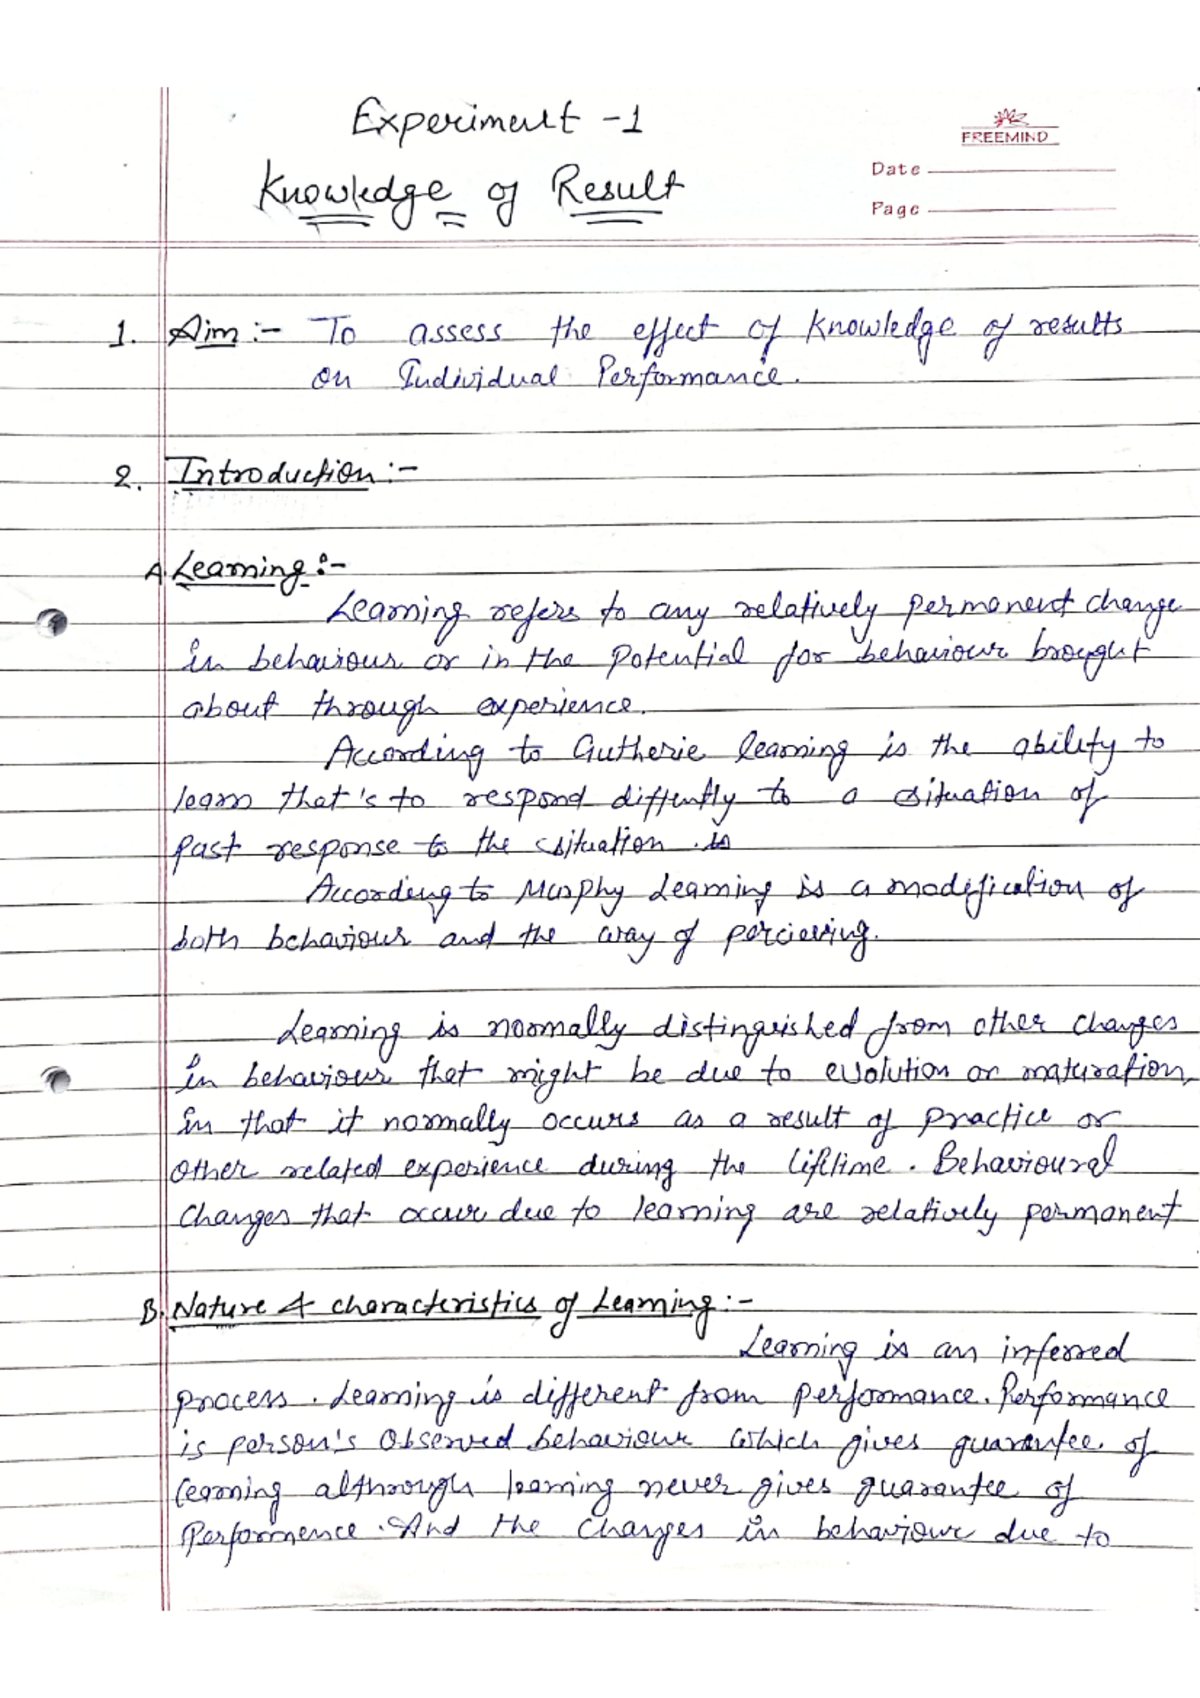 Experiment -1
FREEMIND
Knowledge of Result
Date
Page
1. Aim :- To assess the effect of Knowledge of results
on Individual Performance.
2. Introduction :-
A. Learning :-
Learning refers to any relatively permanent change
in behaviour or in the potential for behaviour brought
about through experience.
According to Gutherie learning is the ability to
learn that's to respond diffently to a situation of
past response to the situation.
According to Murphy Learning is a modification of
both behaviour and the way of percieving.
Learning is normally distinguished from other changes
in behaviour that might be due to evolution or maturation,
in that it normally occurs as a result of practice or
other related experience during the lifetime. Behavioural
changes that occur due to learning are relatively permanent
B. Nature & characteristics of Learning :-
Learning is an inferred
process. Learning is different from performance. Performance
is person's observed behaviour which gives guarantee of
learning althrough learning never gives guarantee of
Performence. And the changes in behaviour due to